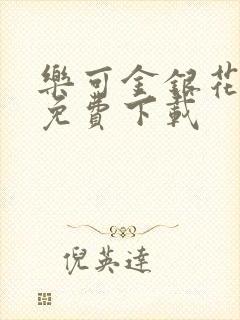 樂可金銀花
免費下載
倪英達